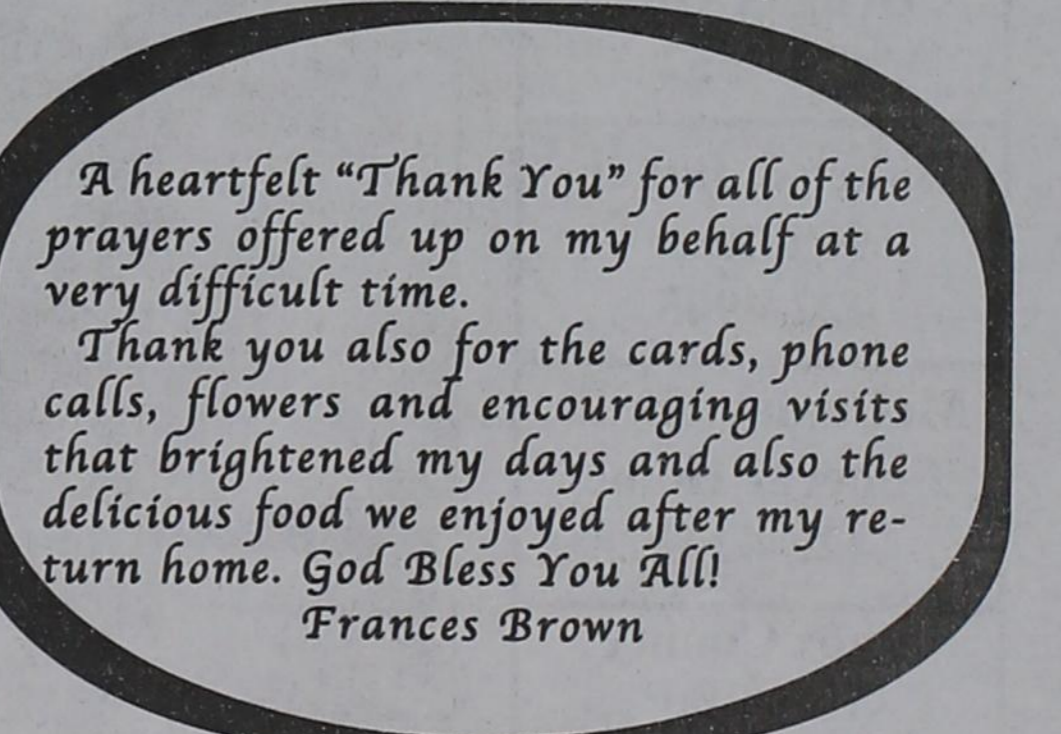 A heartfelt “Thank You” for all of the
prayers offered up on my behalf at a
very difficult time.
Thank you also for the cards, phone
calls, flowers and encouraging visits
that brightened my days and also the
delicious food we enjoyed after my re-
turn home. God Bless You All!
Frances Brown